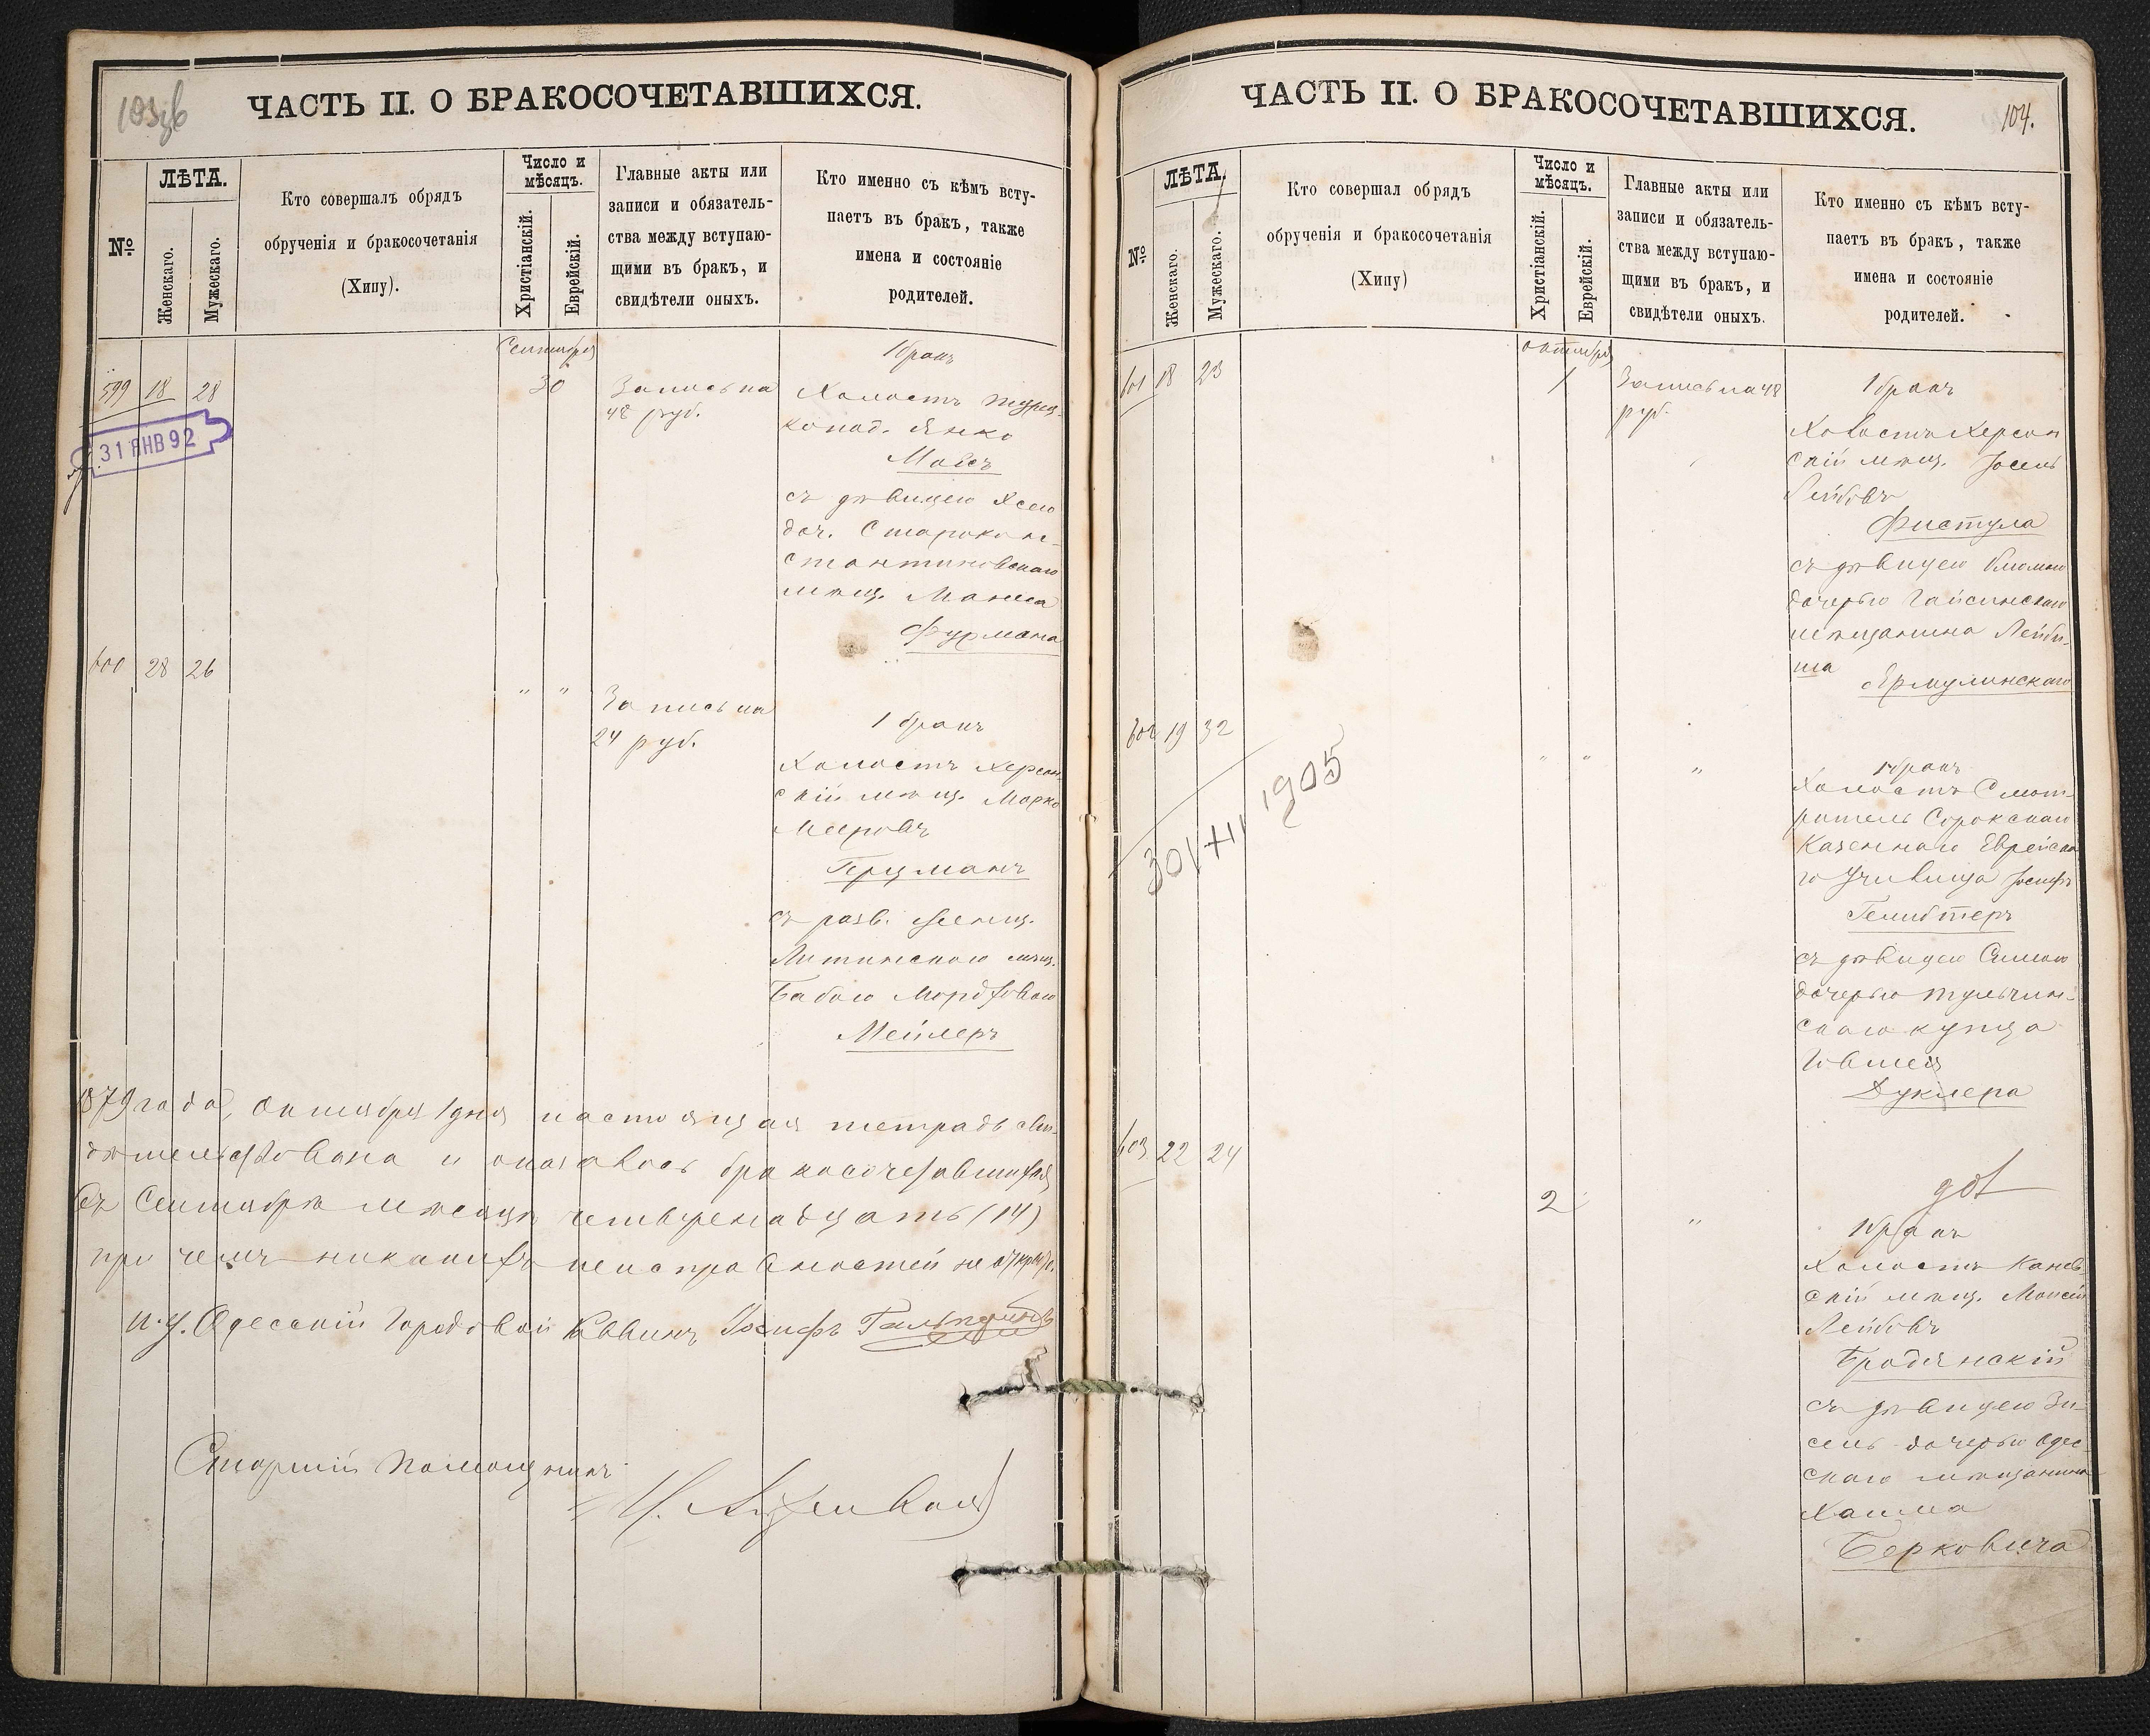 ЧАСТЬ II. О БРАКОСОЧЕТАВШИХСЯ.
№
ЛѢТА.
Женскаго.
Мужескаго.
Кто совершалъ обрядъ
обрученія и бракосочетанія
(Хипу).
Число и
мѣсяцъ.
Христіанскій.
Еврейскій.
Главные акты или
записи и обязатель-
ства между вступаю-
щими въ бракъ, и
свидѣтели оныхъ.
Кто именно съ кѣмъ всту-
паетъ въ бракъ, также
имена и состояніе
родителей.
Сентября
599 18 28
30
Запись на
48 руб.
1 бракъ
Холостъ турец.
Янко
съ дѣвицею
доч. Старокон-
стантиновскаго
мѣщ.
Фурмана
31 ЯНВ 92
600 28 26
" "
Запись на
24 руб.
1 бракъ
Холостъ Херсон-
скій мѣщ. Марко
Мееровъ
Герцманъ
съ разв. женщ.
Литинскою мѣщ.
Бабою
Мейлеръ
1879 года, октября 1 дня настоящая тетрадь сви-
дѣтельствована и оказалось бракосочетавшихся
въ Сентябрѣ мѣсяцѣ четырнадцать (14)
при чемъ никакихъ неисправностей не
И. д. Одесскій Городовой Раввинъ Іосифъ Гальперинъ
Старшій Помощникъ
ЧАСТЬ II. О БРАКОСОЧЕТАВШИХСЯ.
104.
№
ЛѢТА.
Женскаго.
Мужескаго.
Кто совершал обрядъ
обрученія и бракосочетанія
(Хипу)
Число и
мѣсяцъ.
Христіанскій.
Еврейскій.
Главные акты или
записи и обязатель-
ства между вступаю-
щими въ бракъ, и
свидѣтели оныхъ.
Кто именно съ кѣмъ всту-
паетъ въ бракъ, также
имена и состояніе
родителей.
октября
601 18 23
1
Запись на 48
руб.
1 бракъ
Холостъ Херсон
скій мѣщ. Іосель
Лейбовъ
Фистула
съ дѣвицею Блюмою
дочерью Гайсинскаго
мѣщанина Лейби-
ша
Ярмулинскаго
602 19 32
" "
"
1 бракъ
Холостъ Смот-
ритель Сорокскаго
Казеннаго Еврейска
го Училища Іосифъ
Гешбтеръ
съ дѣвицею Симою
дочерью тульчин-
скаго купца
Дуклера
30/XII 1905
603 22 24
2
"
1 бракъ
Холостъ Канев
скій мѣщ. Моисей
Лейбовъ
Бродянскій
съ дѣвицею Зи-
сель дочерью Одес-
скаго мѣщанина
Хаима
Берковича